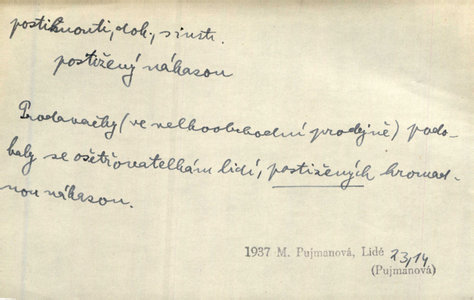 postihnouti, dok., s instr.
postižený nákazou
Prodavačky (ve velkoobchodní prodejně) podo-
baly se ošetřovatelkám lidí, postižených hromad-
nou nákazou.
1937 M. Pujmanová, Lidé 23,14
(Pujmanová)